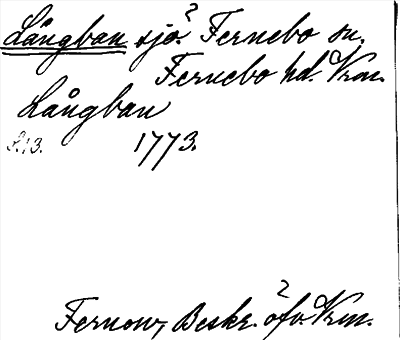 Långban sjö? Fernebo sn.
Fernebo hd. Vrm.
Långban
S. 13. 1773.
Fernow, Beskr. öfv. Vrm.